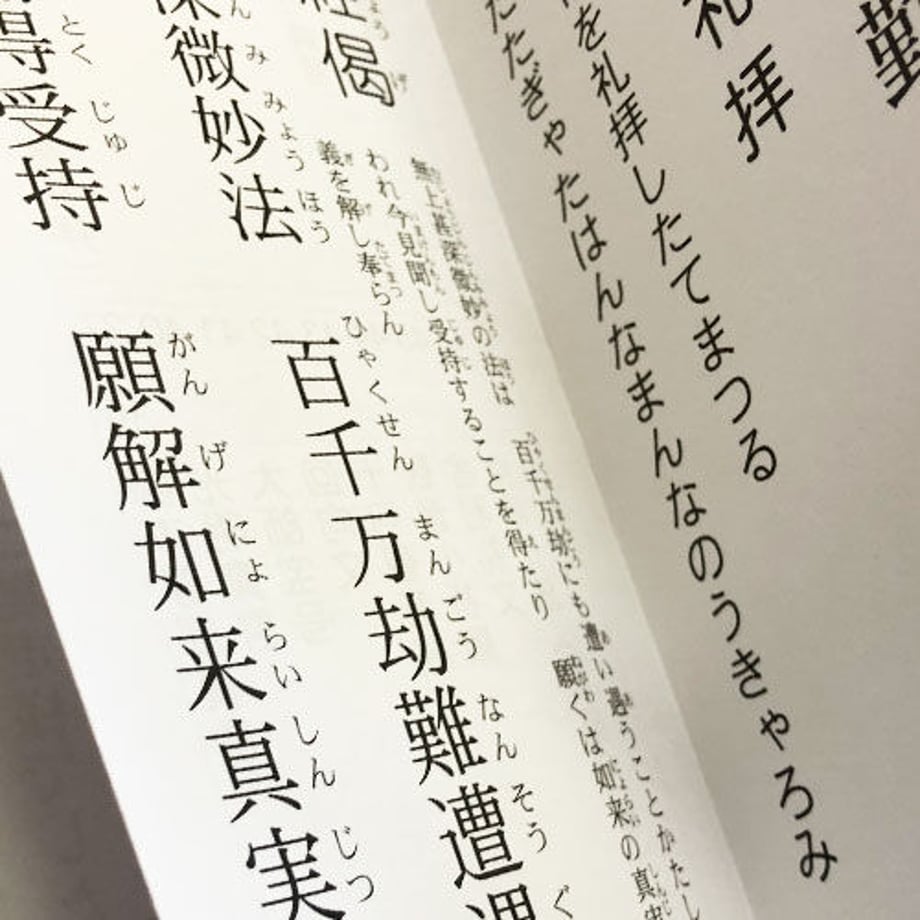 勤
礼拝
を礼拝したてまつる
たたぎゃたはんなまんなのうきゃろみ
経偈
無上甚深微妙の法は 百千万劫にも遭い遇うことかたし
われ今見聞し受持することを得たり 願くは如来の真実
義を解し奉らん
深微妙法 百千万劫難遭遇
得受持 願解如来真実